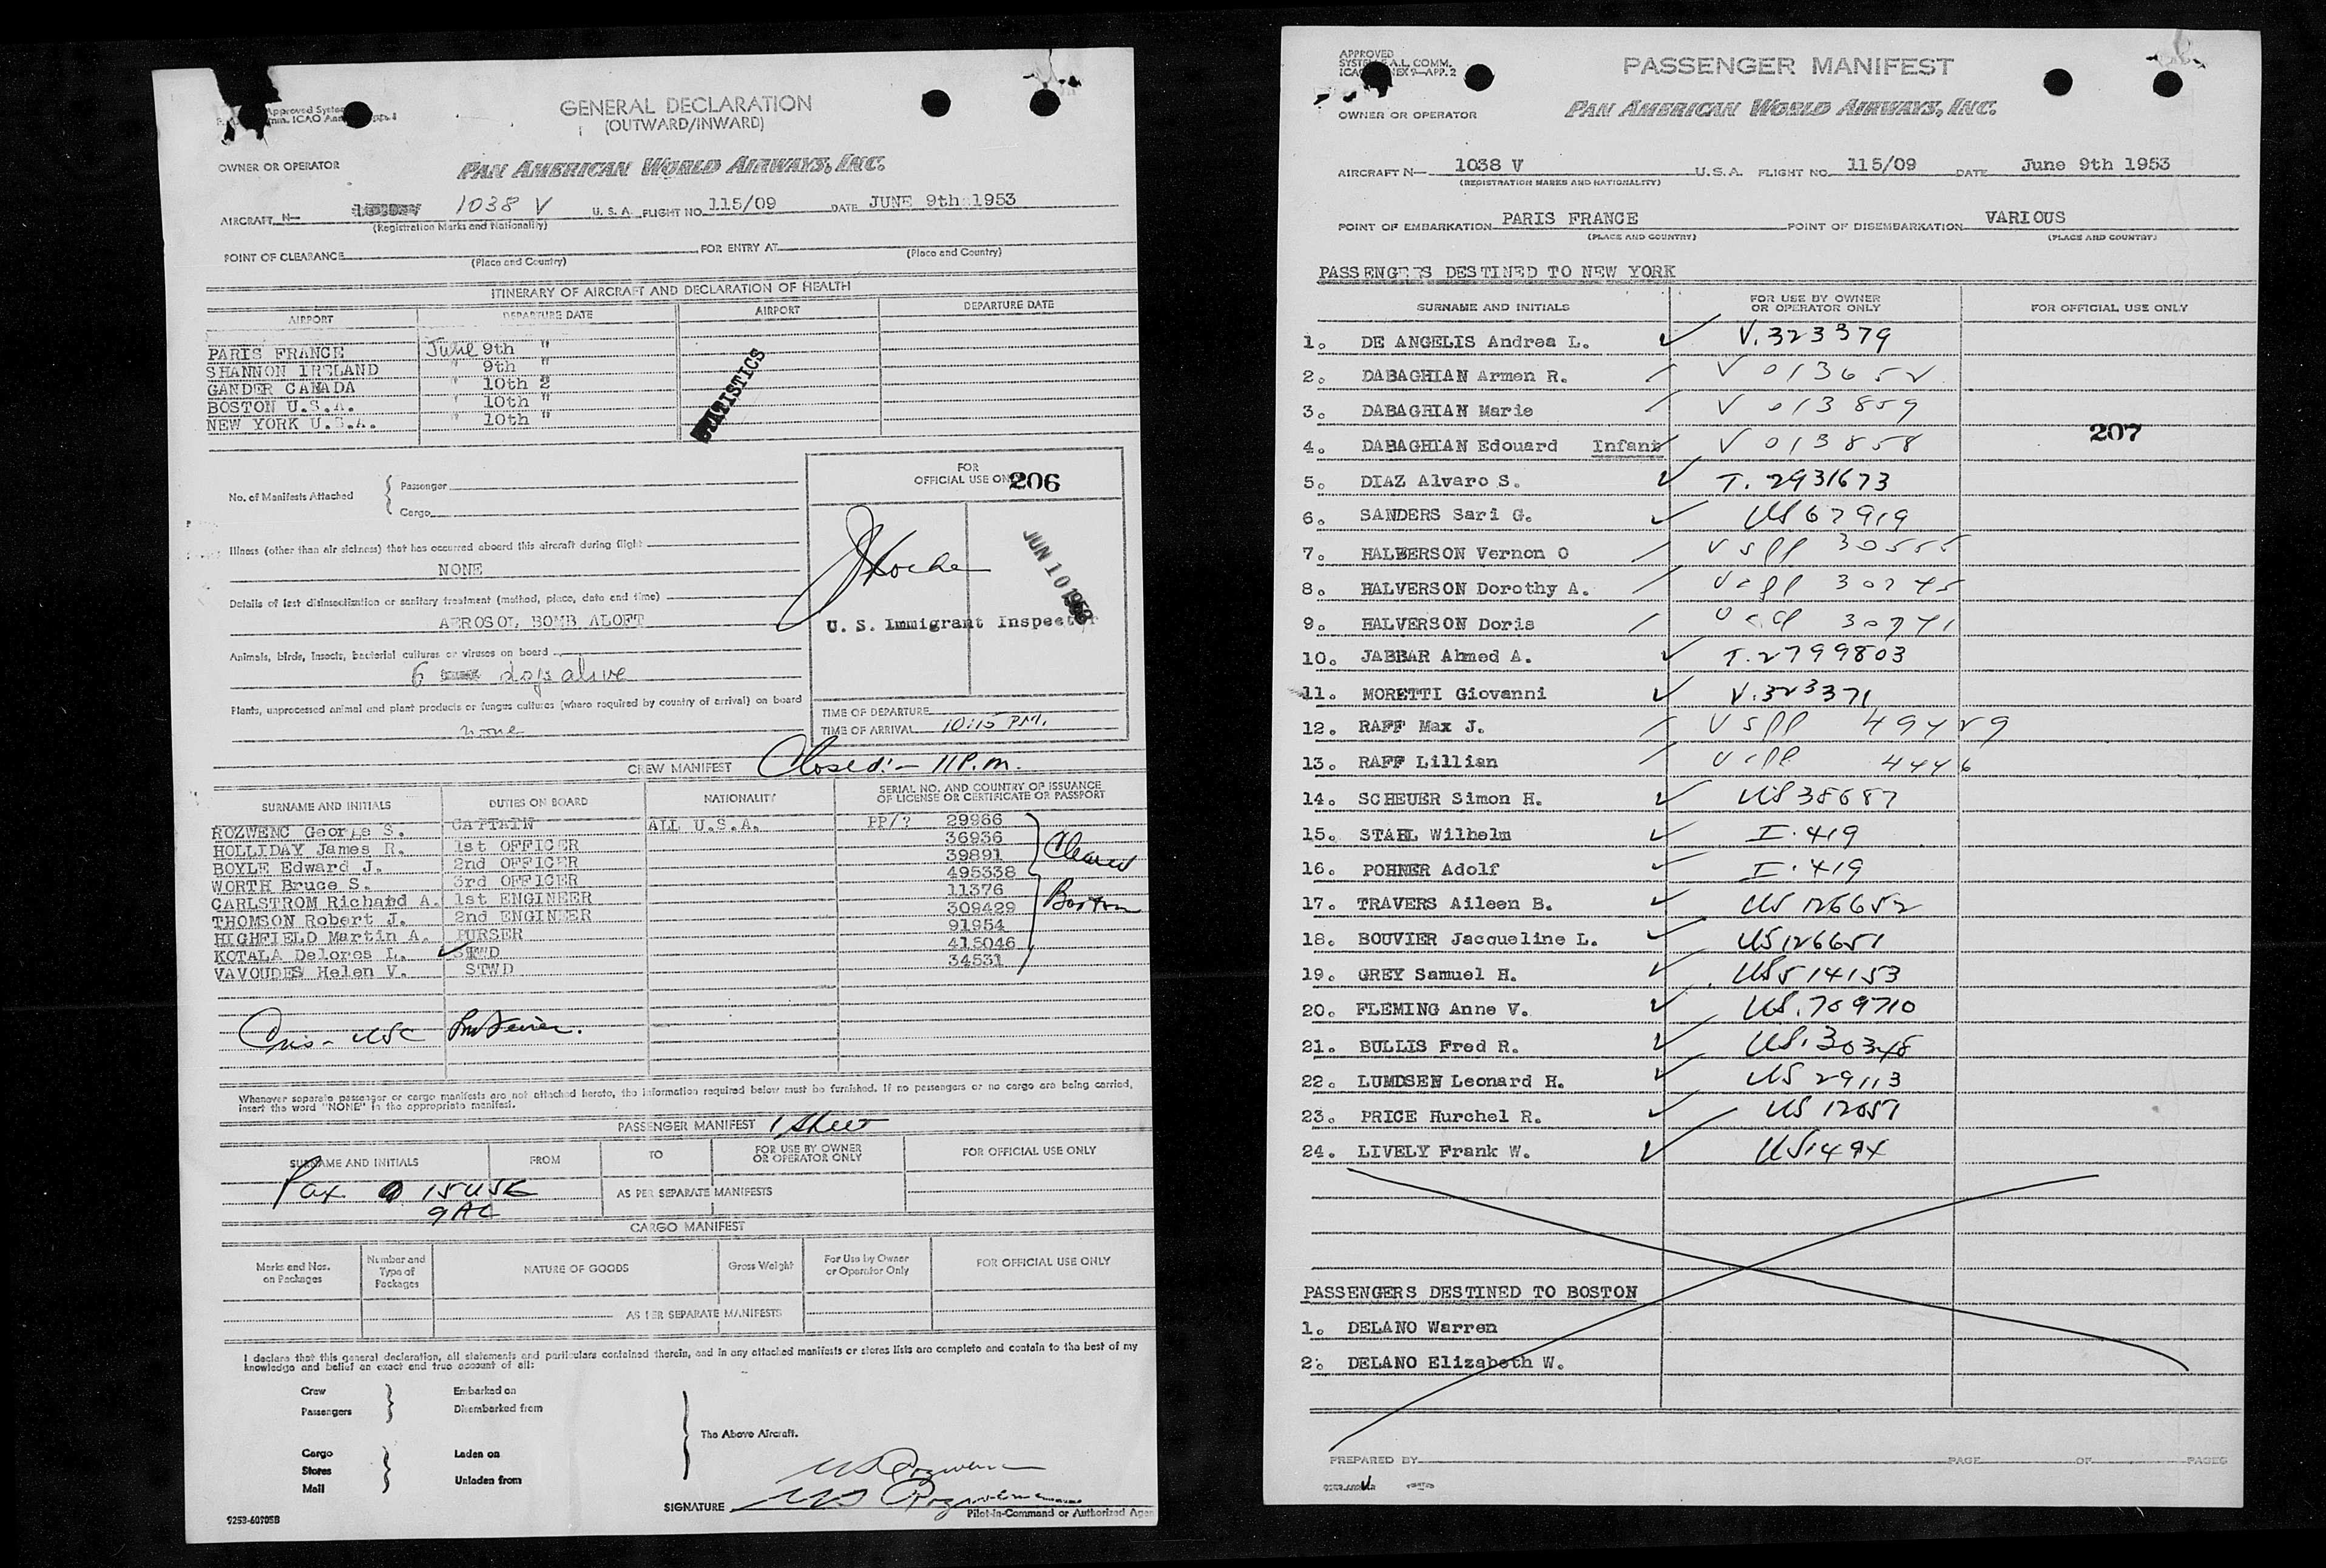 Approved System
Comm. ICAO Ann
GENERAL DECLARATION
(OUTWARD/INWARD)
OWNER OR OPERATOR
PAN AMERICAN WORLD AIRWAYS, INC.
AIRCRAFT N— 1038 V U. S. A. FLIGHT NO. 115/09 DATE JUNE 9th 1953
(Registration Marks and Nationality)
POINT OF CLEARANCE FOR ENTRY AT
(Place and Country) (Place and Country)
ITINERARY OF AIRCRAFT AND DECLARATION OF HEALTH
AIRPORT DEPARTURE DATE AIRPORT DEPARTURE DATE
PARIS FRANCE June 9th "
SHANNON IRELAND " 9th "
GANDER CANADA " 10th 2
BOSTON U.S.A. ' 10th "
NEW YORK U.S.A. " 10th "
STATISTICS
No. of Manifests Attached { Passenger
Cargo
FOR
OFFICIAL USE ON 206
JUN 10 1953
U. S. Immigrant Inspector
Illness (other than air sickness) that has occurred aboard this aircraft during flight
NONE
Details of last disinsectization or sanitary treatment (method, place, date and time)
AEROSOL BOMB ALOFT
Animals, birds, insects, bacterial cultures or viruses on board
6 dogs alive
Plants, unprocessed animal and plant products or fungus cultures (where required by country of arrival) on board
none
TIME OF DEPARTURE
TIME OF ARRIVAL 10:15 P.M.
CREW MANIFEST Closed:- 11 P.m.
SURNAME AND INITIALS DUTIES ON BOARD NATIONALITY SERIAL NO. AND COUNTRY OF ISSUANCE
OF LICENSE OR CERTIFICATE OR PASSPORT
ROZWENC George S. CAPTAIN ALL U.S.A. PP/? 29966
HOLLIDAY James R. 1st OFFICER 36936
BOYLE Edward J. 2nd OFFICER 39891
WORTH Bruce S. 3rd OFFICER 495338
CARLSTROM Richard A. 1st ENGINEER 11376
THOMSON Robert J. 2nd ENGINEER 309429
HIGHFIELD Martin A. PURSER 91954
KOTALA Delores L. ✓ STWD 415046
VAVOUDES Helen V. STWD 34531
Cleared
Boston
Whenever separate passenger or cargo manifests are not attached hereto, the information required below must be furnished. If no passengers or no cargo are being carried,
insert the word "NONE" in the appropriate manifest.
PASSENGER MANIFEST 1 Sheet
SURNAME AND INITIALS FROM TO FOR USE BY OWNER
OR OPERATOR ONLY FOR OFFICIAL USE ONLY
Pax 15 USC
9 AL
AS PER SEPARATE MANIFESTS
CARGO MANIFEST
Marks and Nos.
on Packages Number and
Type of
Packages NATURE OF GOODS Gross Weight For Use by Owner
or Operator Only FOR OFFICIAL USE ONLY
AS PER SEPARATE MANIFESTS
I declare that this general declaration, all statements and particulars contained therein, and in any attached manifests or stores lists are complete and contain to the best of my
knowledge and belief an exact and true account of all:
Crew Embarked on
Passengers Disembarked from
The Above Aircraft.
Cargo Laden on
Stores
Mail Unladen from
SIGNATURE
Pilot-in-Command or Authorized Agen
9253-60705B
APPROVED
SYSTE A.L. COMM.
ICAO NEX 9—APP. 2
PASSENGER MANIFEST
PAN AMERICAN WORLD AIRWAYS, INC.
OWNER OR OPERATOR
AIRCRAFT N— 1038 V U.S.A. FLIGHT NO. 115/09 DATE June 9th 1953
(REGISTRATION MARKS AND NATIONALITY)
POINT OF EMBARKATION PARIS FRANCE POINT OF DISEMBARKATION VARIOUS
(PLACE AND COUNTRY) (PLACE AND COUNTRY)
PASSENGERS DESTINED TO NEW YORK
SURNAME AND INITIALS FOR USE BY OWNER
OR OPERATOR ONLY FOR OFFICIAL USE ONLY
1. DE ANGELIS Andrea L. ✓ V.323379
2. DABAGHIAN Armen R. V 013652
3. DABAGHIAN Marie V 013859
207
4. DABAGHIAN Edouard Infant V 013858
5. DIAZ Alvaro S. ✓ T. 2931673
6. SANDERS Sari G. ✓ US 67919
7. HALBERSON Vernon O 30555
8. HALVERSON Dorothy A. 30745
9. HALVERSON Doris 30741
10. JABBAR Ahmed A. ✓ T.2799803
11. MORETTI Giovanni ✓ V.323371
12. RAFF Max J. 49459
13. RAFF Lillian 4446
14. SCHEUER Simon H. ✓ US 38687
15. STAHL Wilhelm ✓ I.419
16. POHNER Adolf ✓ I.419
17. TRAVERS Aileen B. ✓ US 126652
18. BOUVIER Jacqueline L. ✓ US 126651
19. GREY Samuel H. ✓ US 514153
20. FLEMING Anne V. ✓ US.709710
21. BULLIS Fred R. ✓ US.30348
22. LUMDSEN Leonard H. ✓ US 29113
23. PRICE Hurchel R. ✓ US 12057
24. LIVELY Frank W. ✓ US 1494
PASSENGERS DESTINED TO BOSTON
1. DELANO Warren
2. DELANO Elizabeth W.
PREPARED BY PAGE OF PAGES